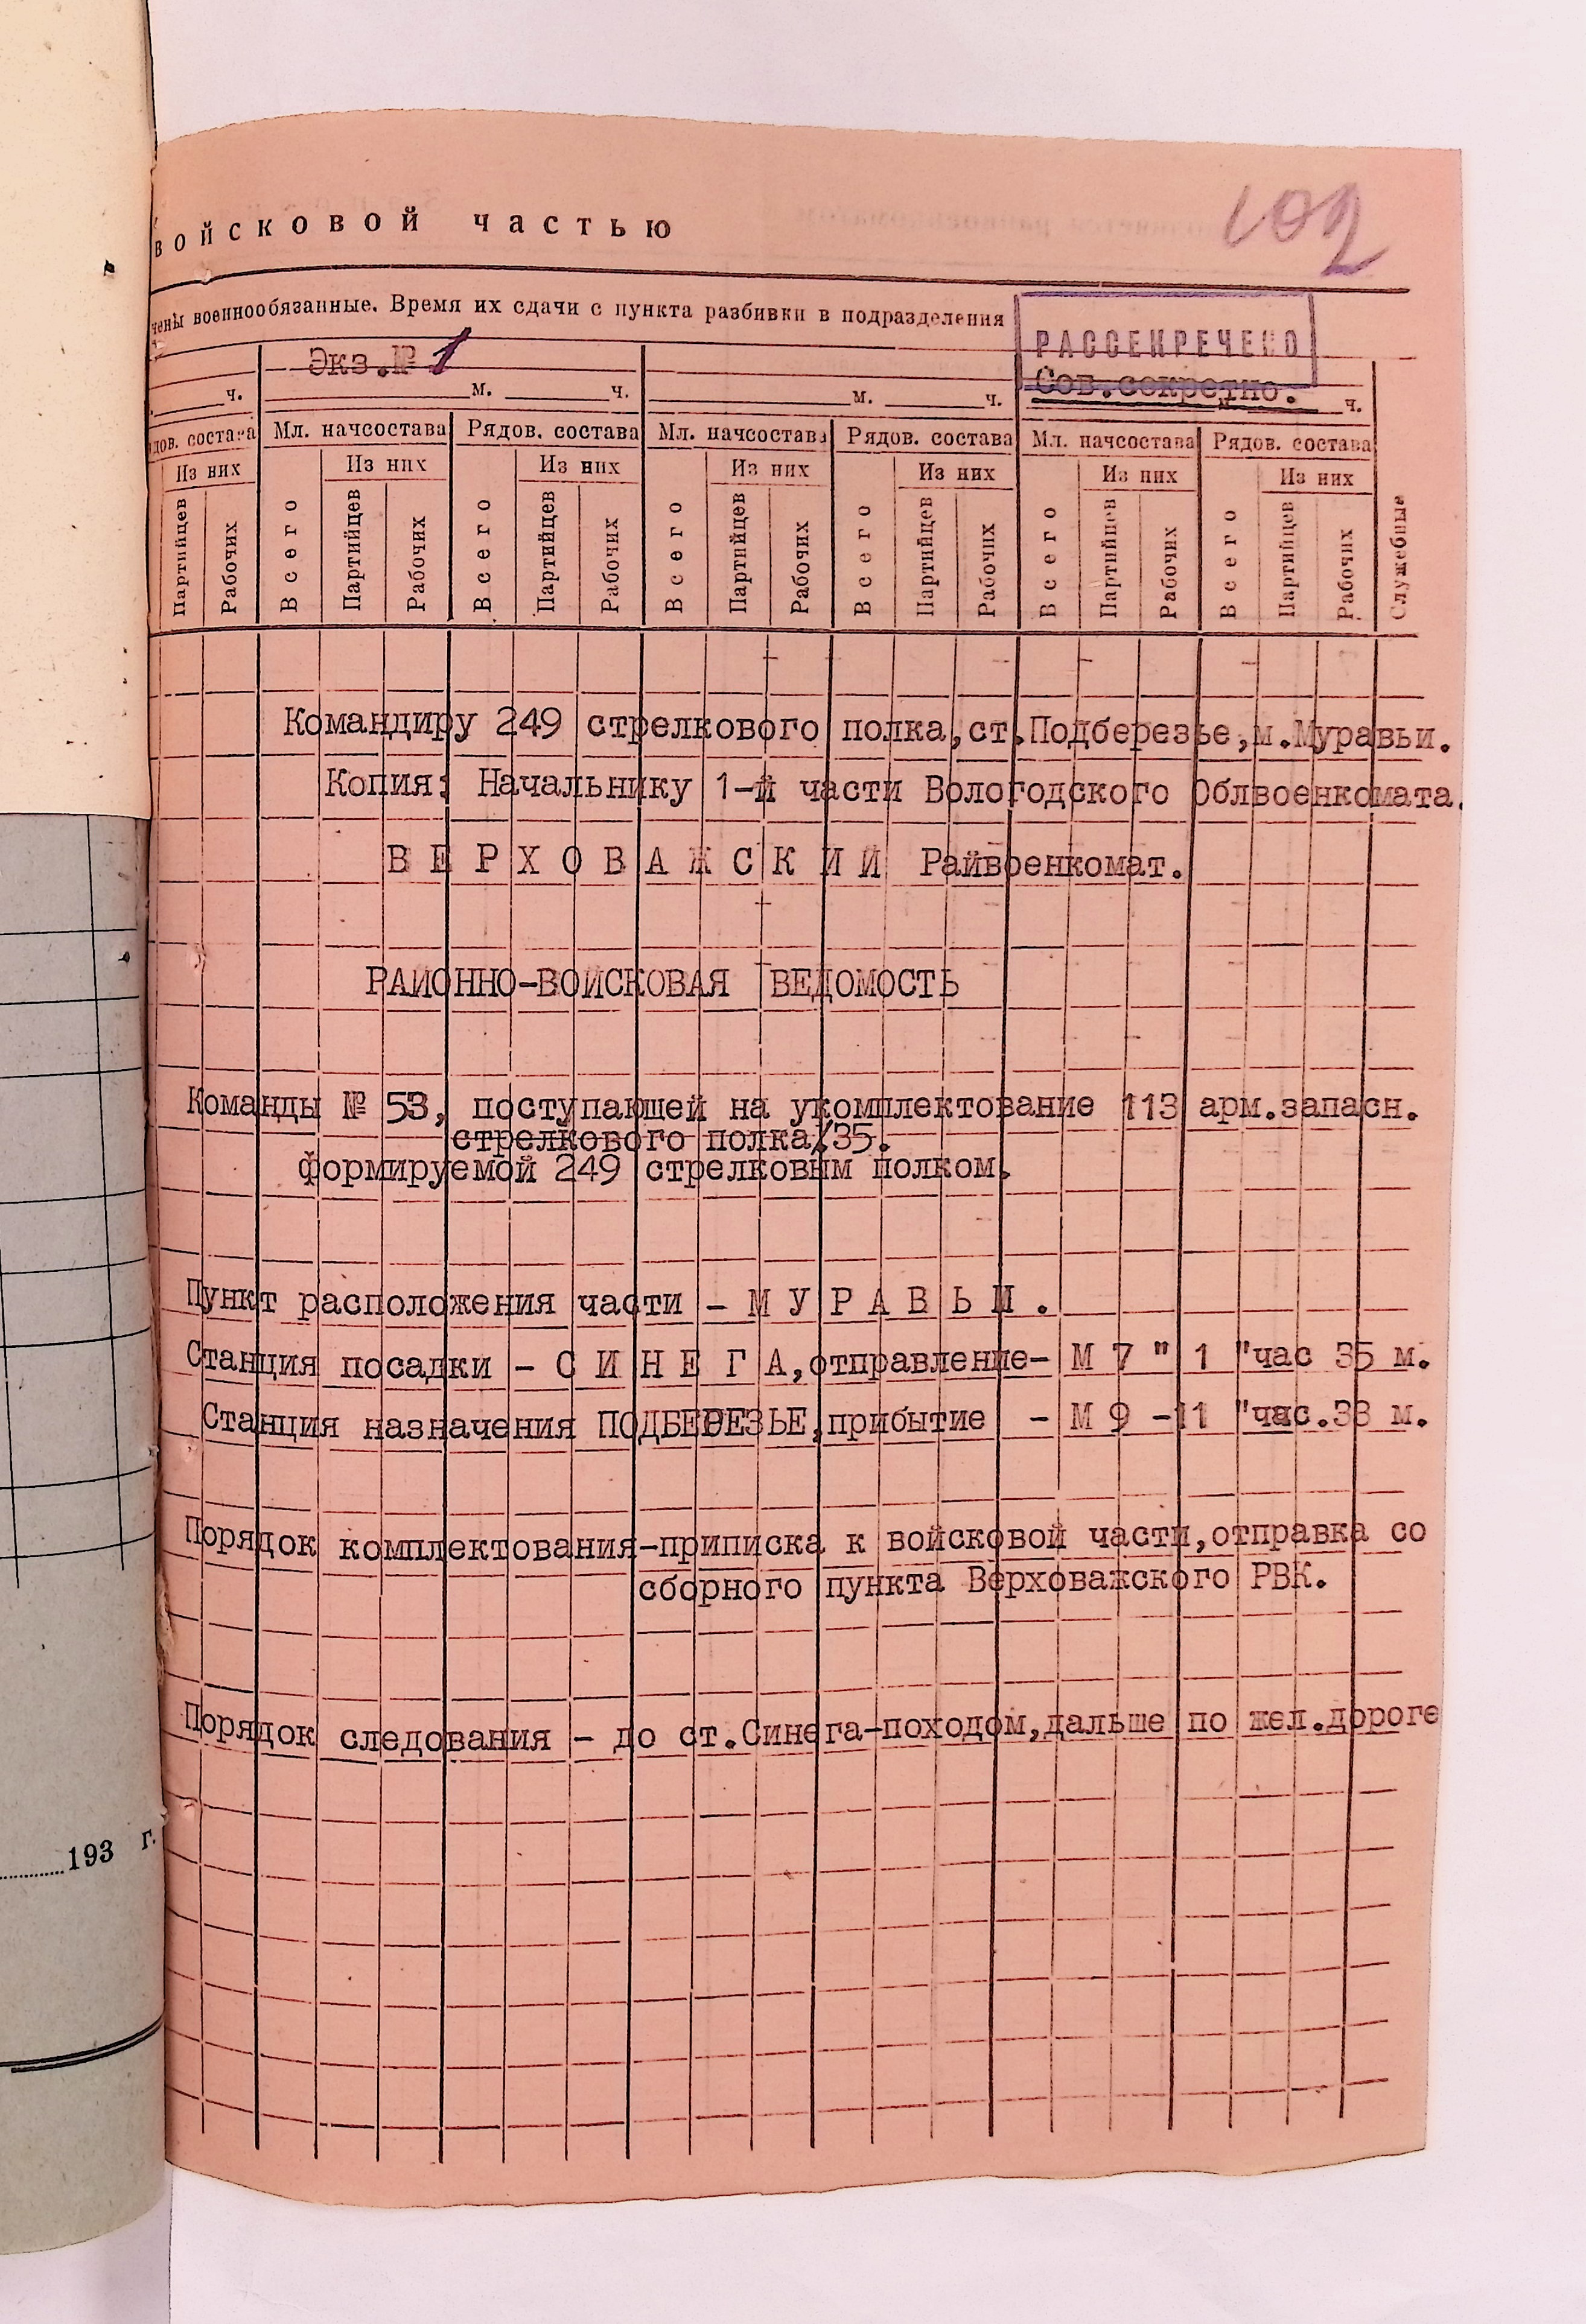 войсковой частью
102
чены военнообязанные. Время их сдачи с пункта разбивки в подразделения
РАССЕКРЕЧЕНО
Экз.№ 1
Сов.секретно.
ч. м. ч. м. ч. ч.
дов. состава Мл. начсостава Рядов. состава Мл. начсостава Рядов. состава Мл. начсостава Рядов. состава
Из них Из них Из них Из них Из них Из них Из них
Партийцев Рабочих Всего Партийцев Рабочих Всего Партийцев Рабочих Всего Партийцев Рабочих Всего Партийцев Рабочих Всего Партийцев Рабочих Всего Партийцев Рабочих Служебные
Командиру 249 стрелкового полка,ст.Подберезье,м.Муравьи.
Копия: Начальнику 1-й части Вологодского Облвоенкомата.
В Е Р Х О В А Ж С К И Й Райвоенкомат.
РАЙОННО-ВОЙСКОВАЯ ВЕДОМОСТЬ
Команды № 53, поступающей на укомплектование 113 арм.запасн.
стрелкового полка/35.
формируемой 249 стрелковым полком.
Пункт расположения части - М У Р А В Ь И .
Станция посадки - С И Н Е Г А,отправление- М 7 " 1 "час 35 м.
Станция назначения ПОДБЕРЕЗЬЕ,прибытие - М 9 -11 "час.38 м.
Порядок комплектования-приписка к войсковой части,отправка со
сборного пункта Верховажского РВК.
Порядок следования - до ст.Синега-походом,дальше по жел.дороге
193 г.